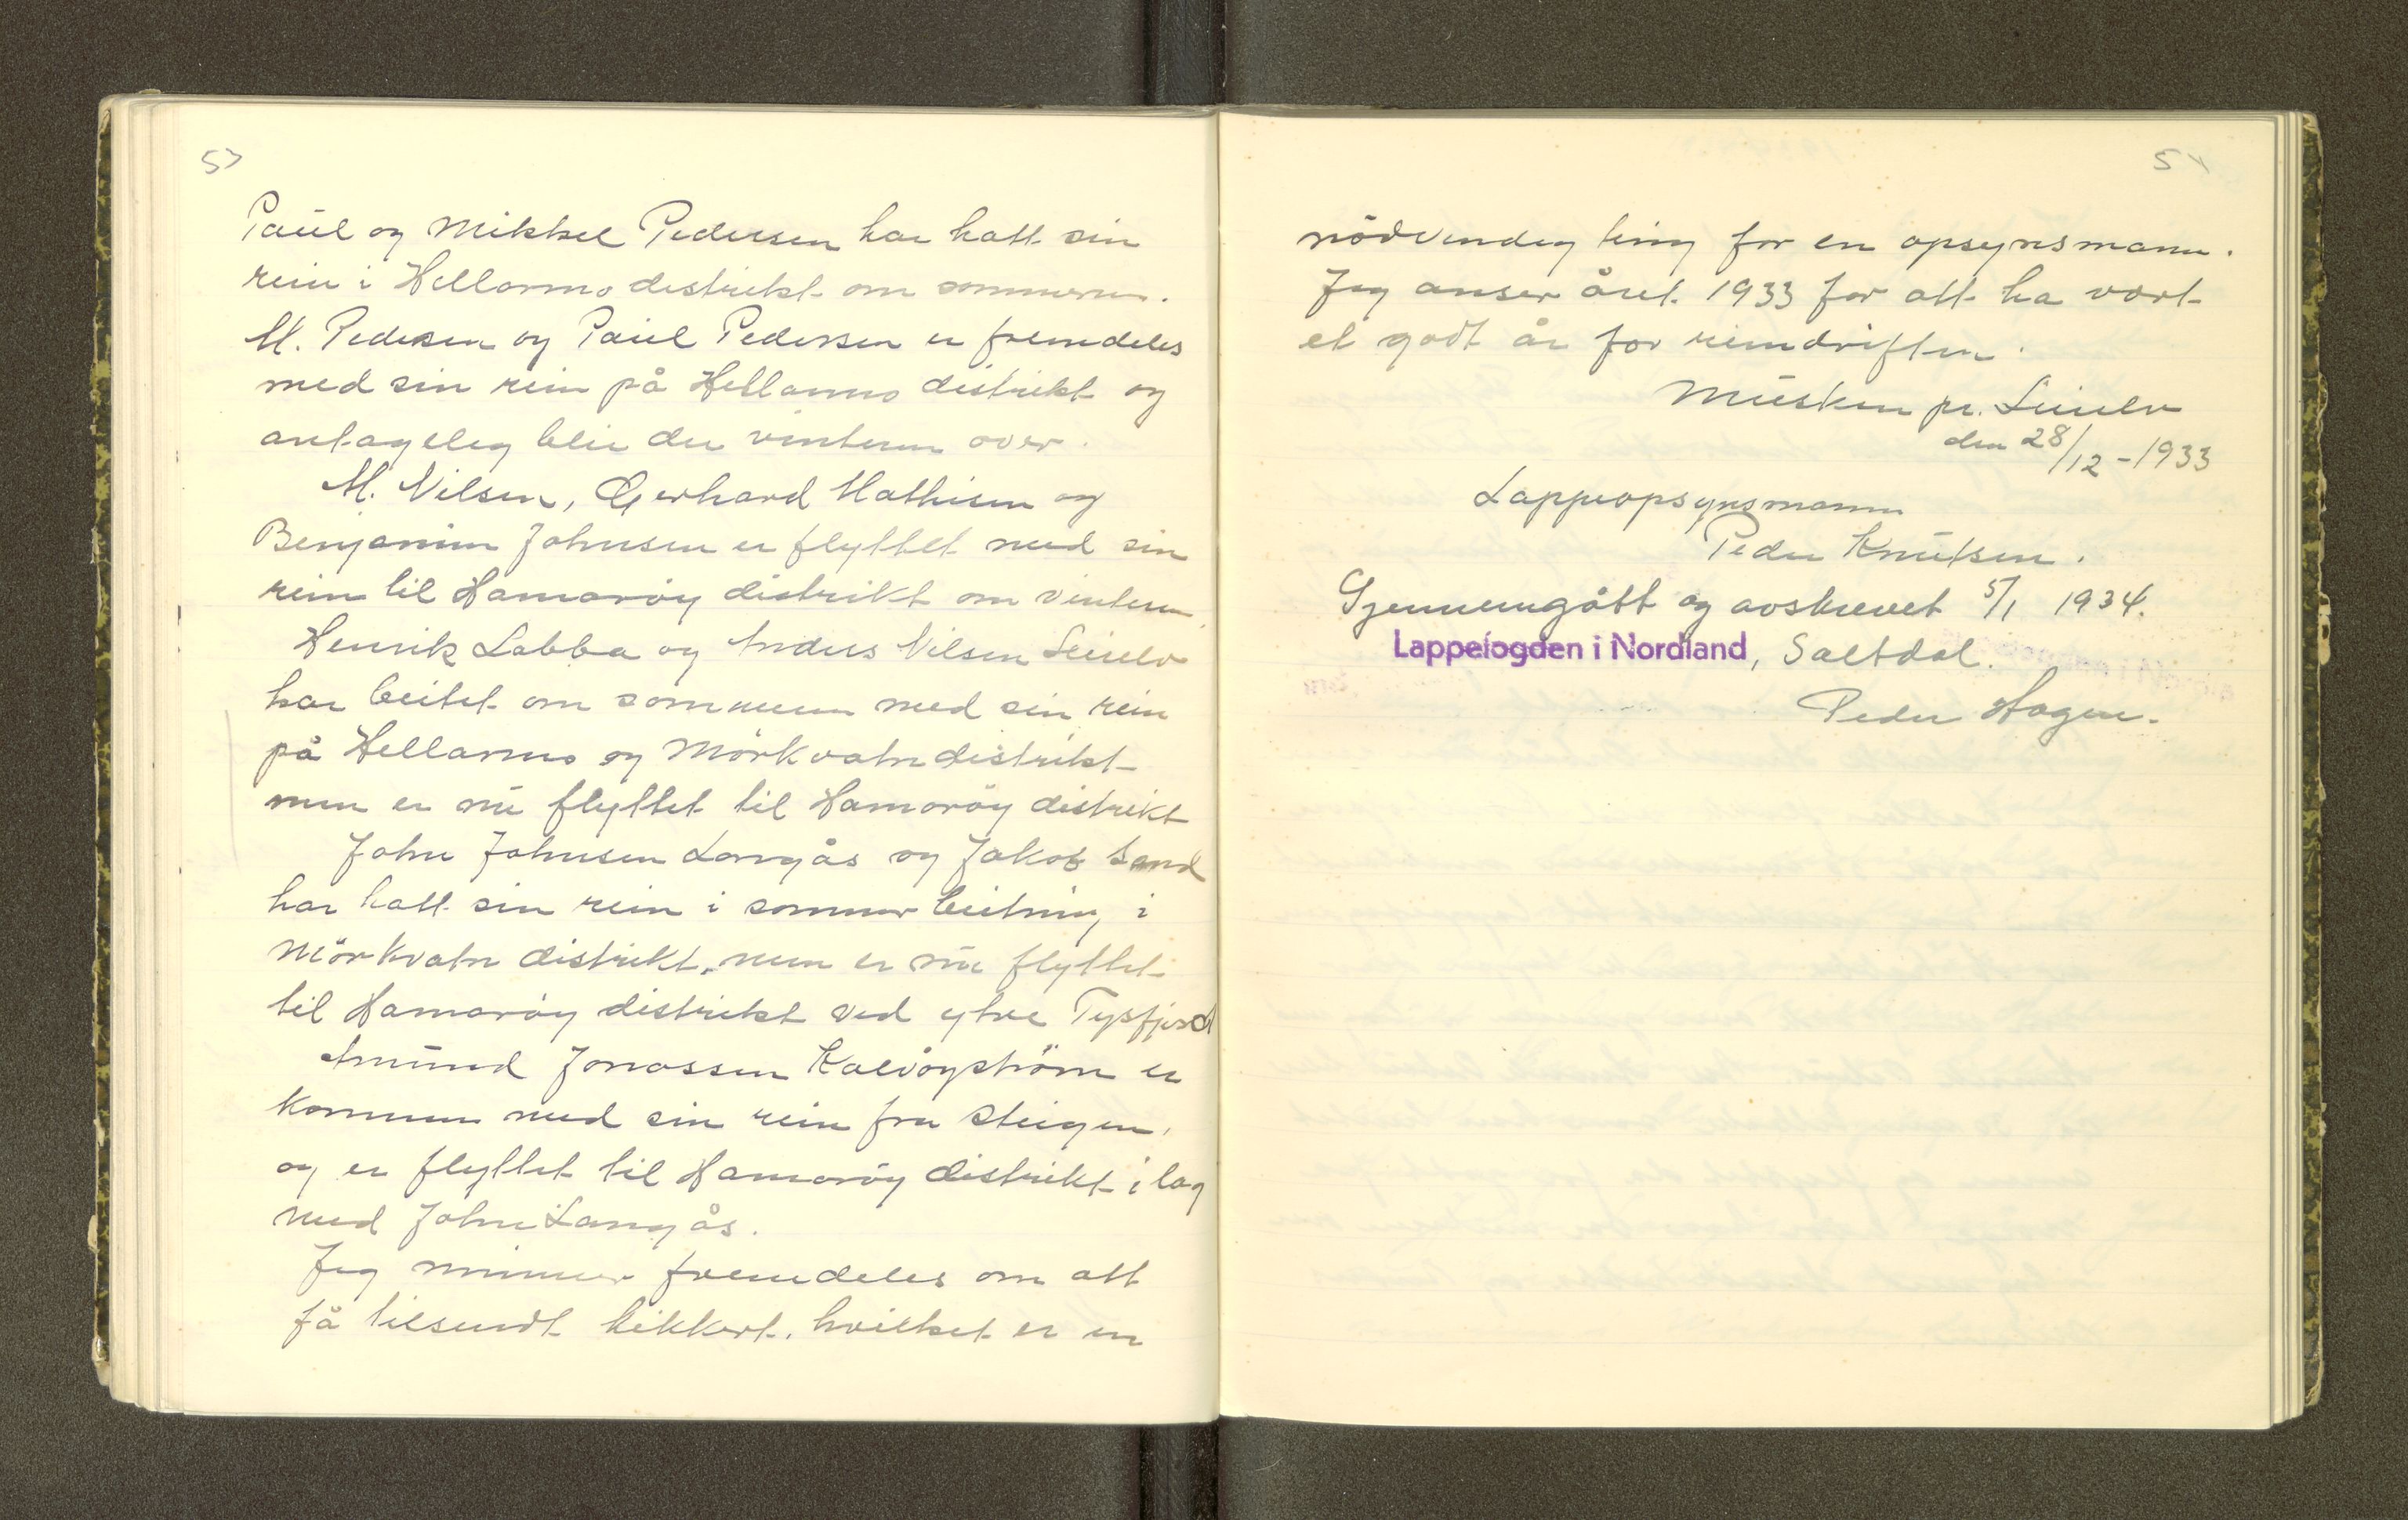 53
Paul og Mikkel Pedersen har hatt sin
rein i Hellarmo distrikt om sommeren.
M. Pedersen og Paul Pedersen er fremdeles
med sin rein på Hellarmo distrikt og
antageleg blir der vinteren over.
M. Nilsen, Gerhard Mathisen og
Benjamin Johnsen er flyttet med sin
rein til Hamarøy distrikt om vinteren.
Henrik Labba og Anders Nilsen Leirelv
har beitet om sommeren med sin rein
på Hellarmo og Mörkvatn distrikt
men er nu flyttet til Hamaröy distrikt
John Johnsen Langås og Jakob Sand
har hatt sin rein i sommerbeitning i
Mörkvatn distrikt, men er nu flyttet
til Hamaröy distrikt ved ytre Tysfjord
Amund Jonassen Kalvöystrøm er
kommen med sin rein fra Steigen,
og er flyttet til Hamaröy distrikt i lag
med John Langås.
Jeg minner fremdeles om att
få tilsendt kikkert, hvilket er en
54
nödvendig ting for en opsynsmann.
Jeg anser året 1933 for att ha vært
et godt år for reindriften.
Musken pr. Leirelv
den 28/12-1933
Lappeopsynsmann
Peder Knutsen.
Gjennemgått og avskrevet 5/1 1934.
Lappefogden i Nordland, Saltdal.
Peder Hagen.